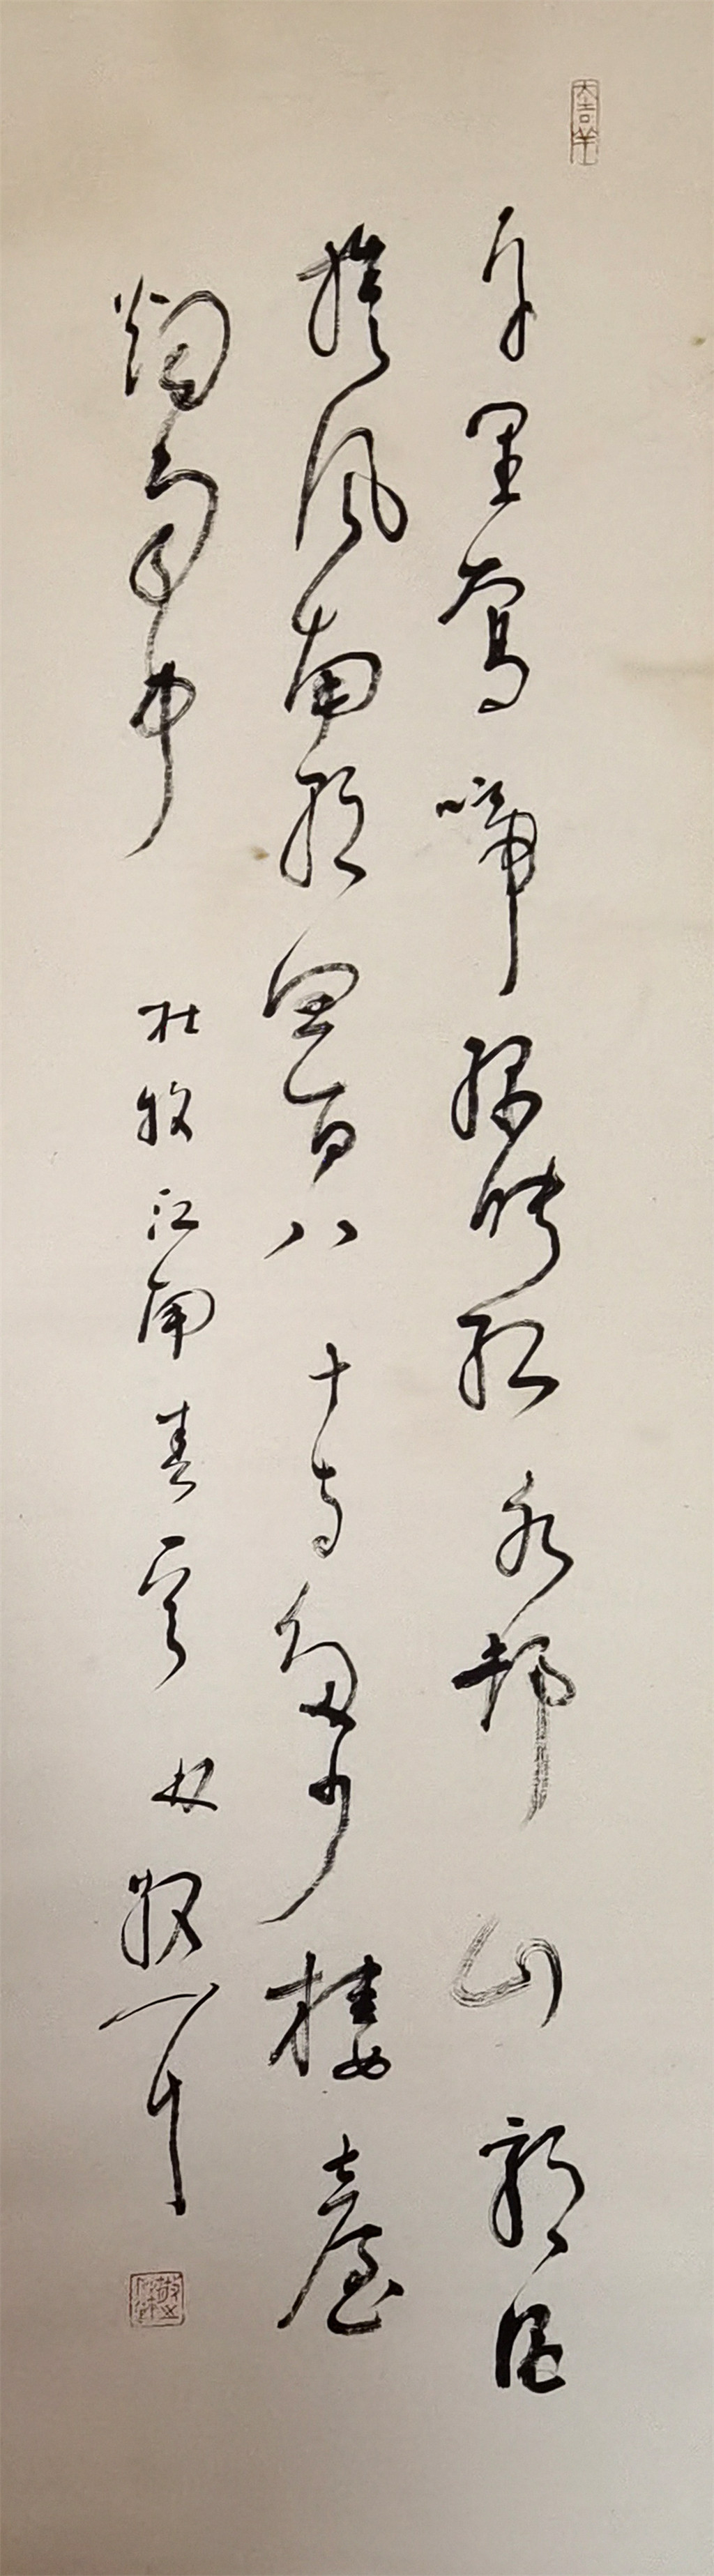 大吉羊
千里鶯啼綠映紅水邨山郭酒
旗風南朝四百八十寺多少樓臺
烟雨中 杜牧江南春 林散耳